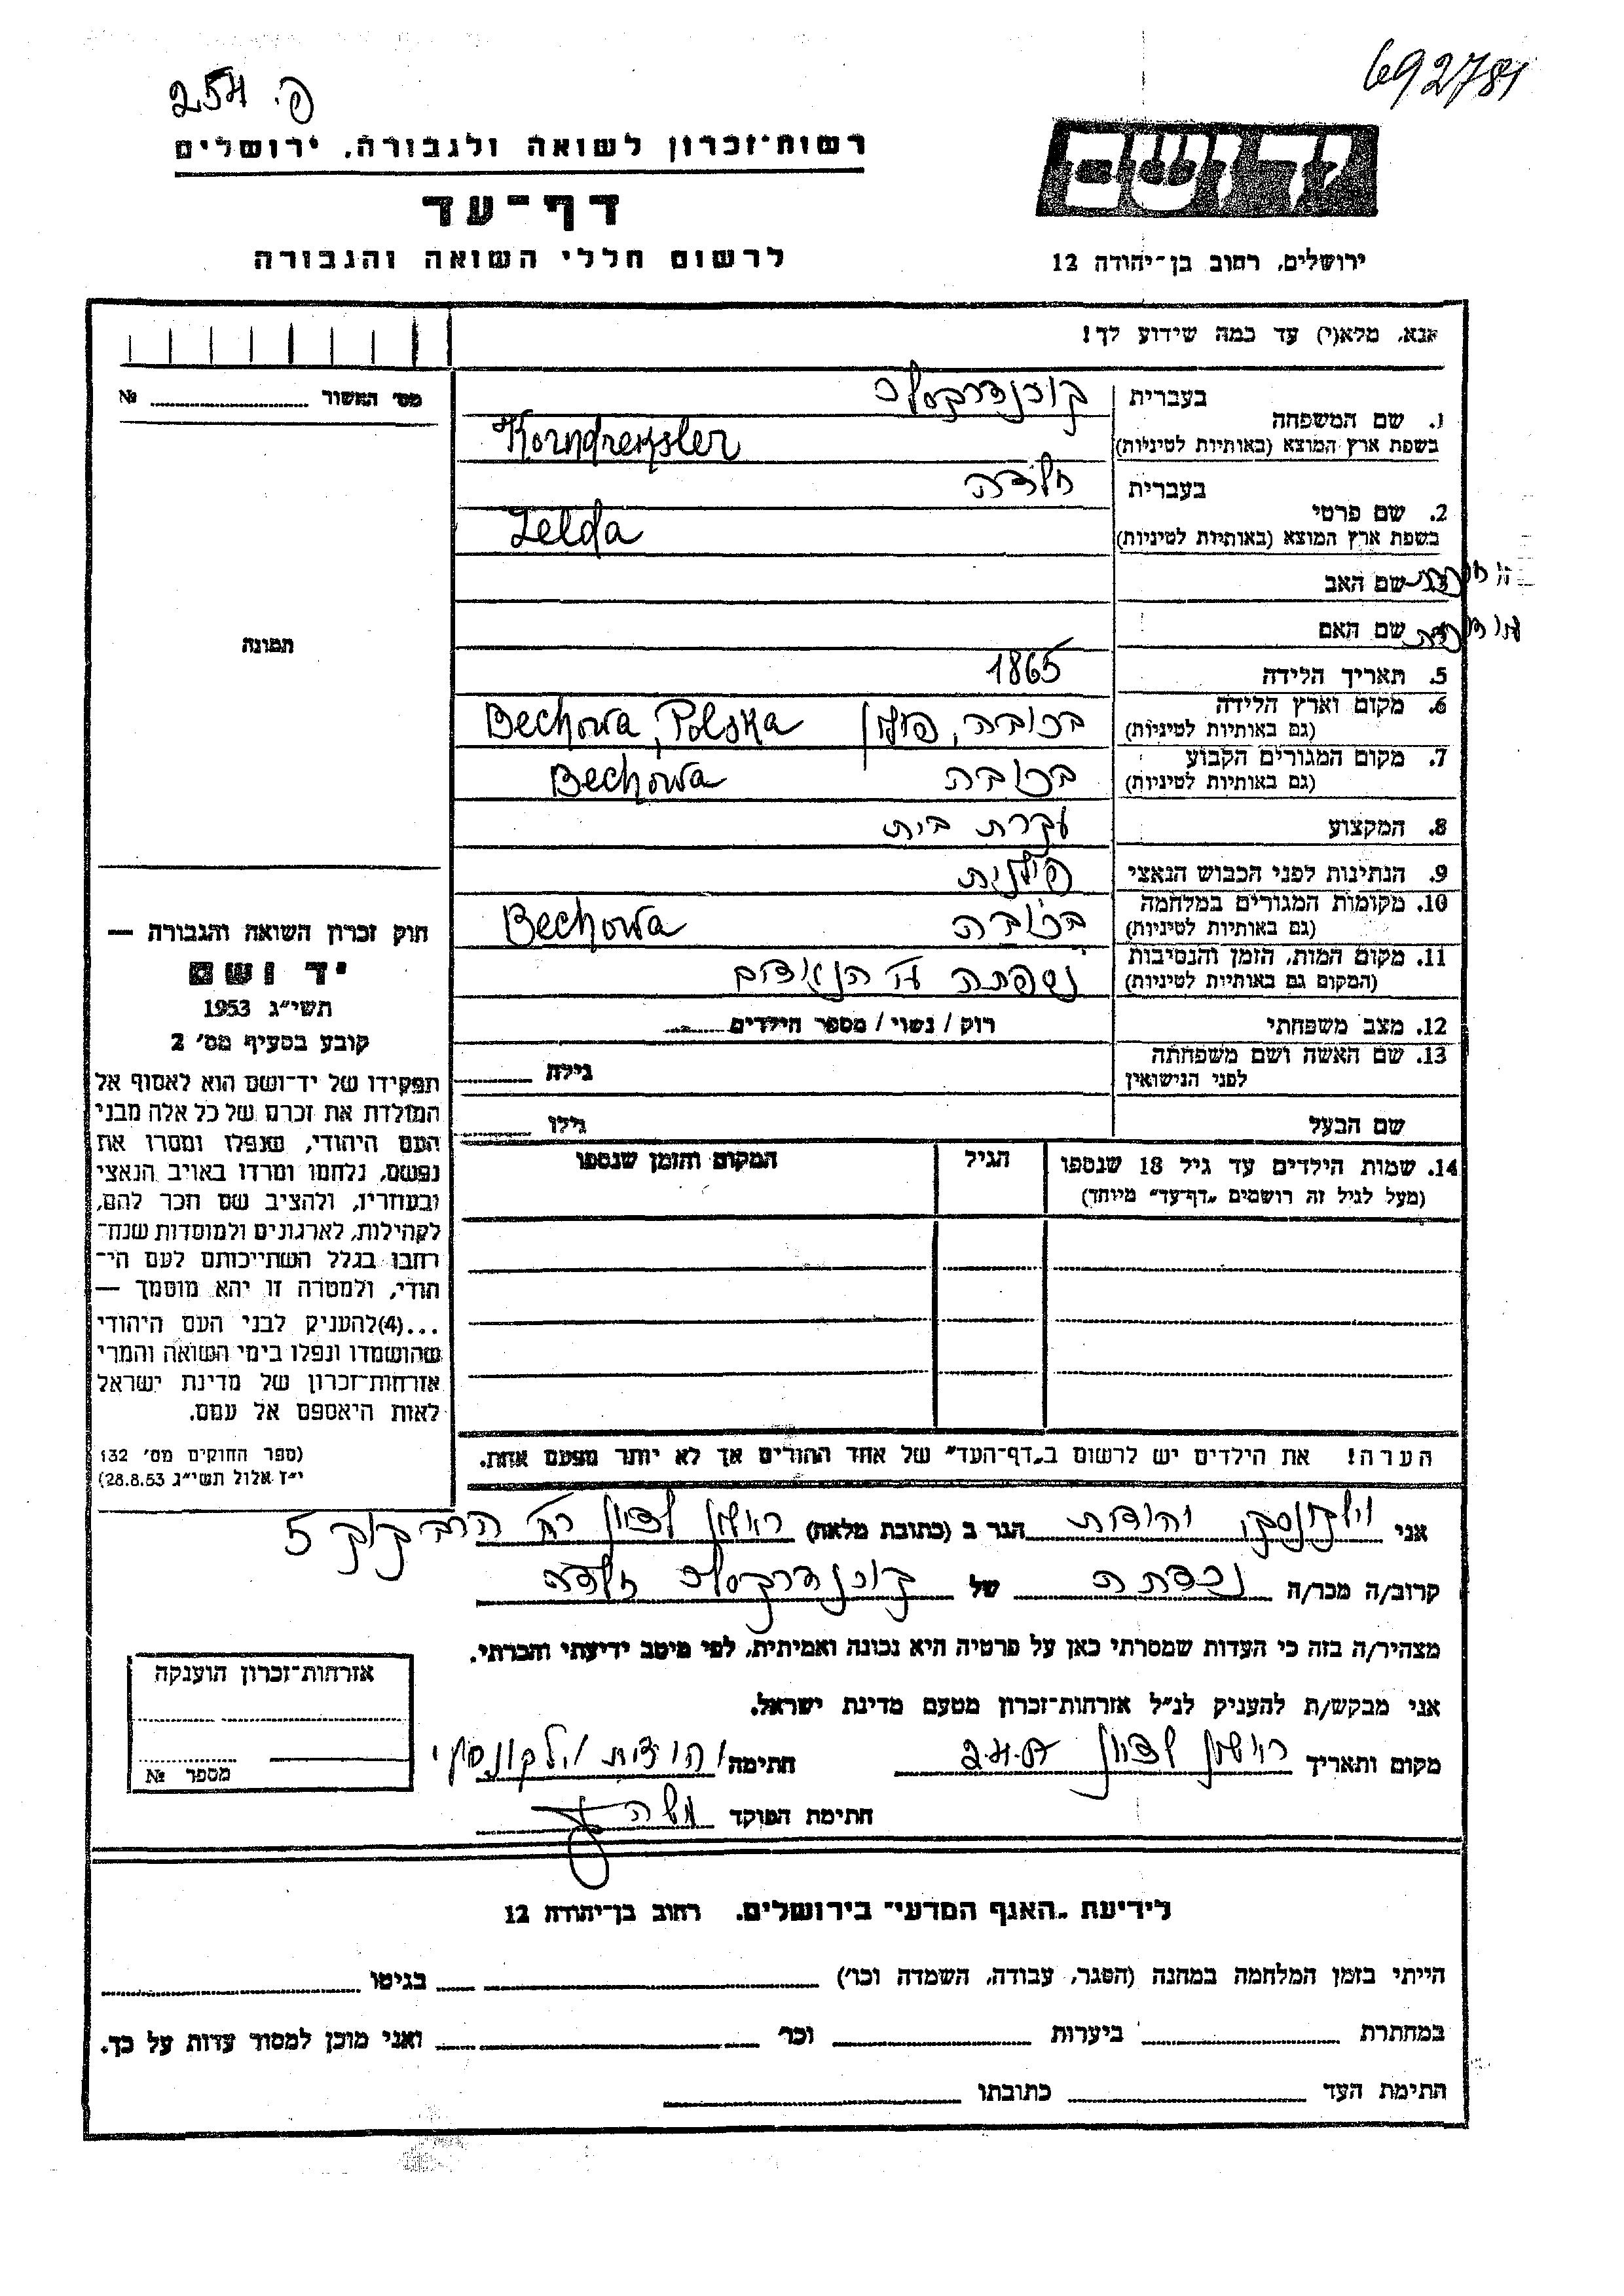 692781
פ. 254
רשות־זכרון לשואה ולגבורה, ירושלים
דף־עד
לרשום חללי השואה והגבורה
ירושלים, רחוב בן־יהודה 12
אנא, מלא(י) עד כמה שידוע לך!
מס' האשור № 
1. שם המשפחה
בעברית
בשפת ארץ המוצא (באותיות לטיניות)
Korndreksler
2. שם פרטי
בעברית
זלדה
בשפת ארץ המוצא (באותיות לטיניות)
Zelda
שם האב
שם האם
5. תאריך הלידה 1865
6. מקום וארץ הלידה
(גם באותיות לטיניות)
בכובה, פולין Bechowa, Polska
7. מקום המגורים הקבוע
(גם באותיות לטיניות)
בכובה Bechowa
8. המקצוע עקרת בית
9. הנתינות לפני הכבוש הנאצי פולנית
10. מקומות המגורים במלחמה
(גם באותיות לטיניות)
בכובה Bechowa
11. מקום המות, הזמן והנסיבות
(המקום גם באותיות לטיניות)
נספתה ע"י הנאצים
12. מצב משפחתי רוק / נשוי / מספר הילדים
13. שם האשה ושם משפחתה
לפני הנישואין
גילה
שם הבעל גילו
14. שמות הילדים עד גיל 18 שנספו הגיל המקום והזמן שנספו
(מעל לגיל זה רושמים „דף־עד" מיוחד)
הערה! את הילדים יש לרשום ב„דף־העד" של אחד ההורים אך לא יותר מפעם אחת.
תמונה
חוק זכרון השואה והגבורה —
יד ושם
תשי"ג 1953
קובע בסעיף מס' 2
תפקידו של יד־ושם הוא לאסוף אל
המולדת את זכרם של כל אלה מבני
העם היהודי, שנפלו ומסרו את
נפשם, נלחמו ומרדו באויב הנאצי
ובעוזריו, ולהציב שם וזכר להם,
לקהילות, לארגונים ולמוסדות שנח־
רבו בגלל השתייכותם לעם הי־
הודי, ולמטרה זו יהא מוסמך —
...(4)להעניק לבני העם היהודי
שהושמדו ונפלו בימי השואה והמרי
אזרחות־זכרון של מדינת ישראל
לאות היאספם אל עמם.
(ספר החוקים מס' 132
י"ז אלול תשי"ג 28.8.53)
אני וילקונסקי יהודית הגר ב (כתובת מלאה) ראשון לציון רח' הרב קוק 5
קרוב/ה מכר/ה נכדתה של זלדה
מצהיר/ה בזה כי העדות שמסרתי כאן על פרטיה היא נכונה ואמיתית, לפי מיטב ידיעתי והכרתי.
אני מבקש/ת להעניק לנ"ל אזרחות־זכרון מטעם מדינת ישראל.
מקום ותאריך ראשון לציון חתימה יהודית וילקונסקי
חתימת הפוקד משה
אזרחות־זכרון הוענקה
מספר №
לידיעת „האגף המדעי" בירושלים. רחוב בן־יהודה 12
הייתי בזמן המלחמה במחנה (הסגר, עבודה, השמדה וכו') בגיטו
במחתרת ביערות וכו' ואני מוכן למסור עדות על כך.
חתימת העד כתובתו